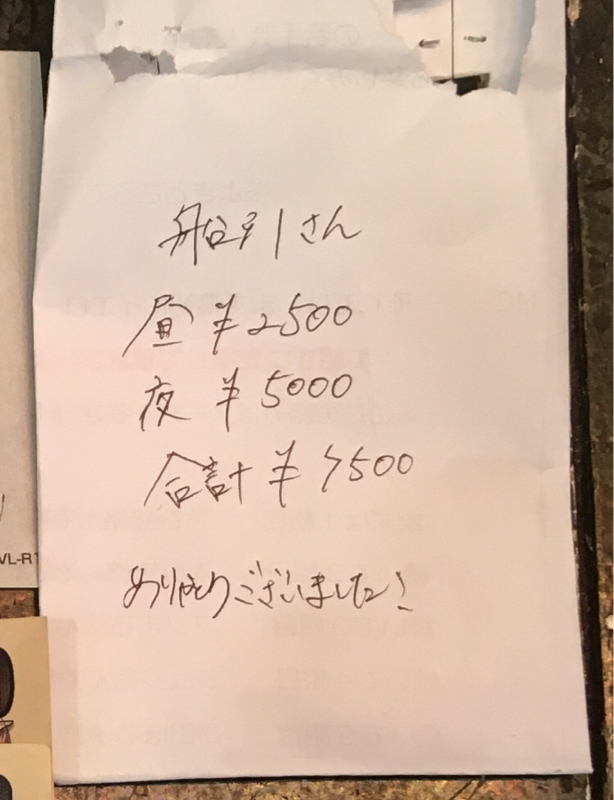 船引さん
昼 ¥2500
夜 ¥5000
合計 ¥7500
ありがとうございました!
VL-R1